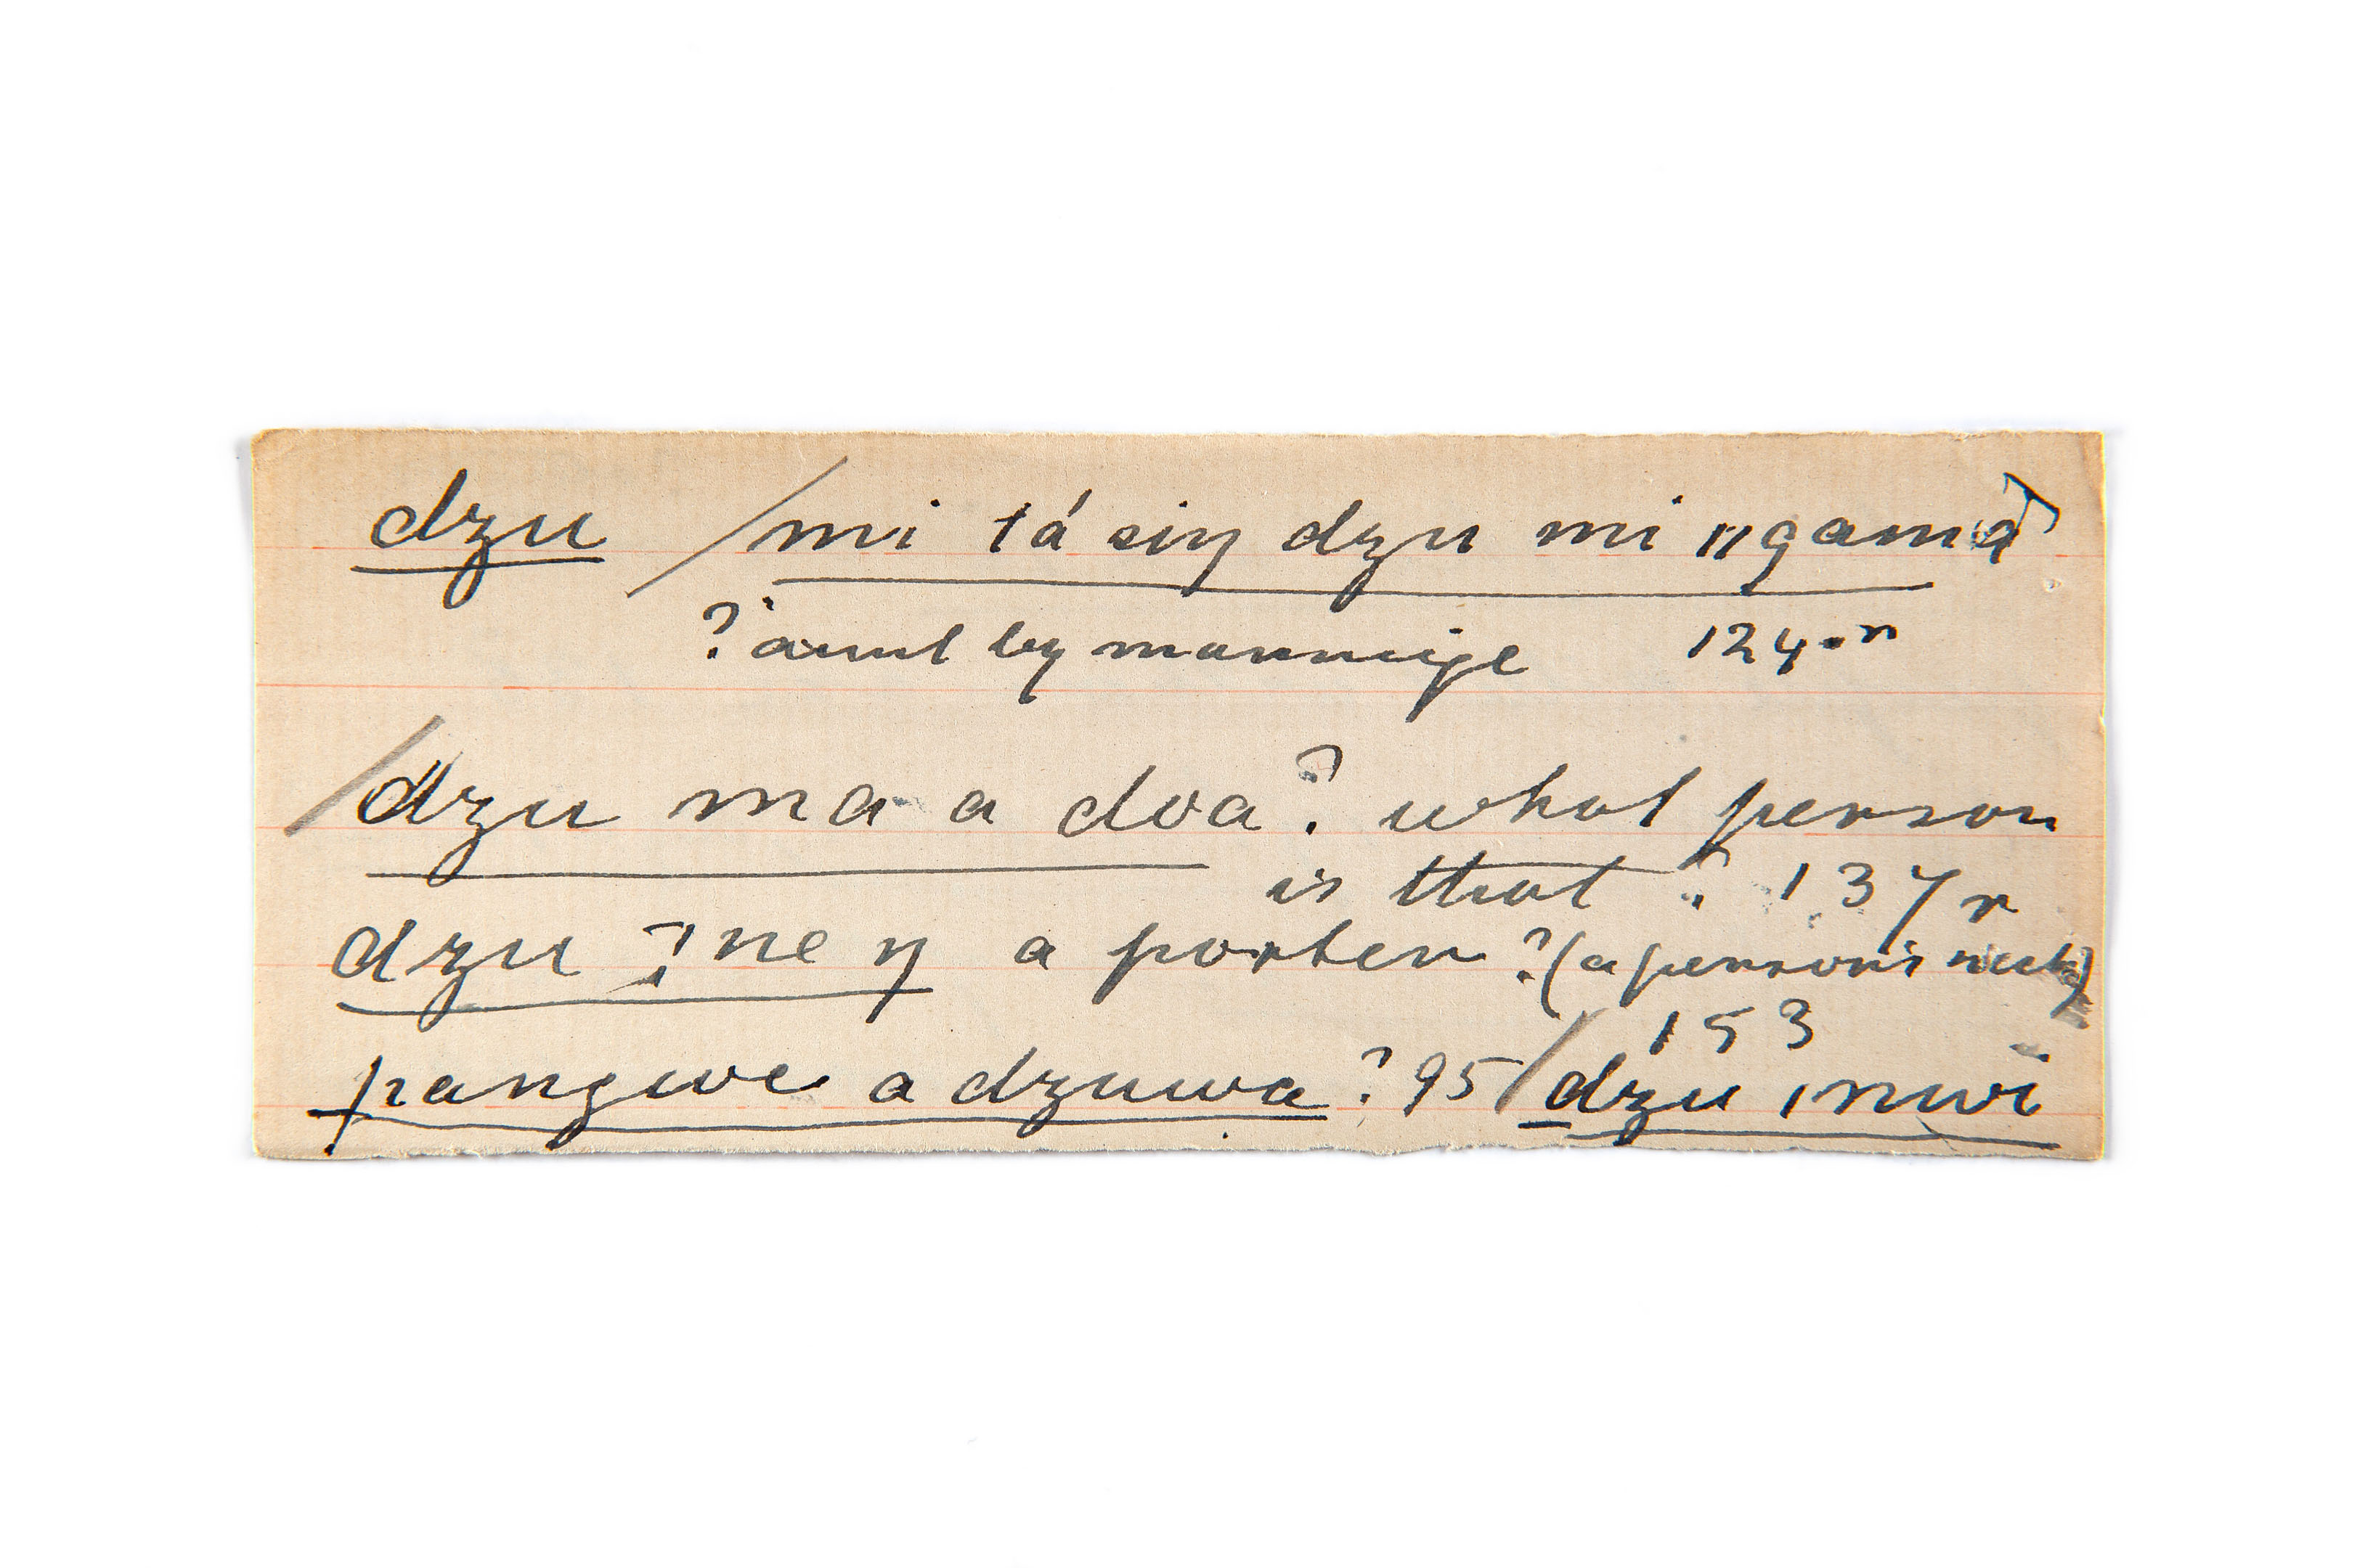 dzu /mi tá siŋ dzu mi ŋgamá
? aunt by marriage 124.n
/dzu ma a dva? what person
is that? 137r
dzu ne ŋ a porter? (a person's neck)
153
pangwe a dzuwa? 95 /dzu ınwi